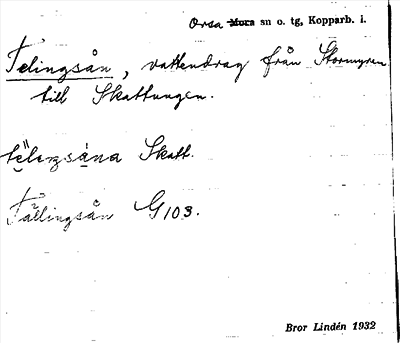 Orsa Mora sn o. tg, Kopparb. l.
Telingsån, vattendrag från Stormyren
till Skattungen.
Skatt.
Tällingsån G 103.
Bror Lindén 1932